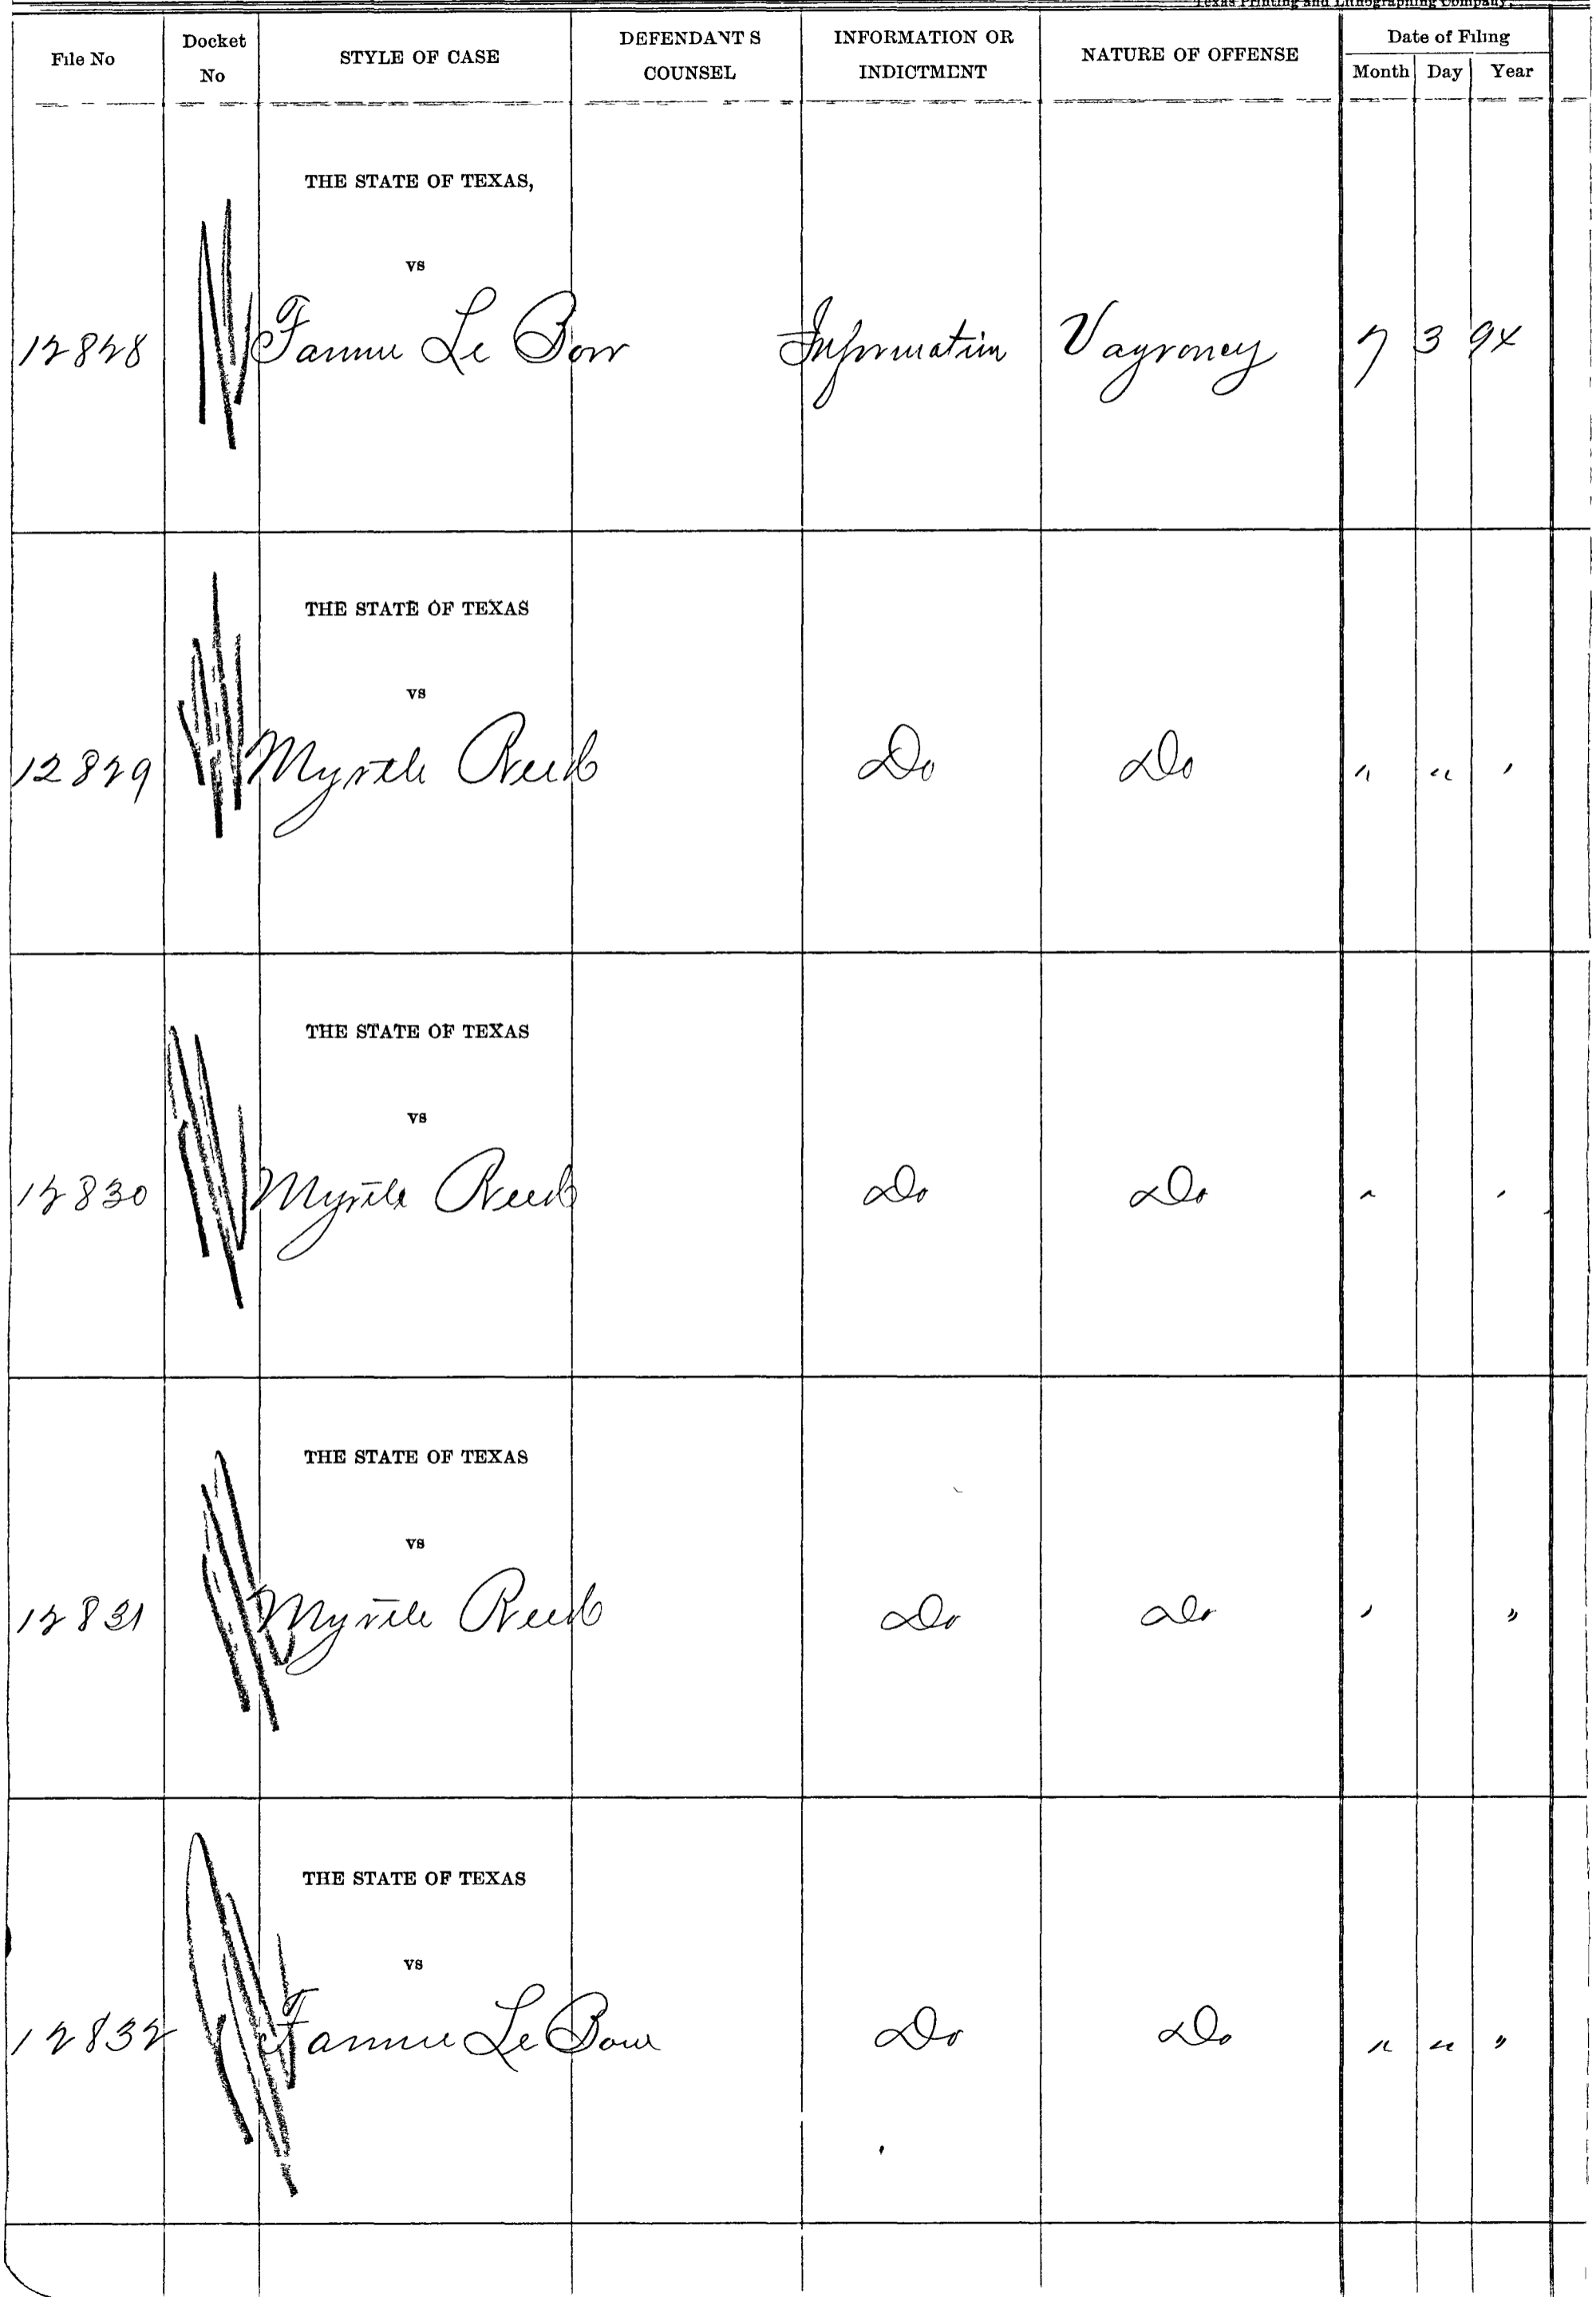 Texas Printing and Lithographing Company.
File No
Docket No
STYLE OF CASE
DEFENDANT S COUNSEL
INFORMATION OR INDICTMENT
NATURE OF OFFENSE
Date of Filing
Month Day Year
THE STATE OF TEXAS,
vs
12828 Fannie Le Information Vagrancy 7 3 94
THE STATE OF TEXAS
vs
12829 Myrtle Reed Do Do " " "
THE STATE OF TEXAS
vs
12830 Myrtle Reed Do Do " "
THE STATE OF TEXAS
vs
12831 Myrtle Reed Do Do " "
THE STATE OF TEXAS
vs
12832 Fannie Le Do Do " " "